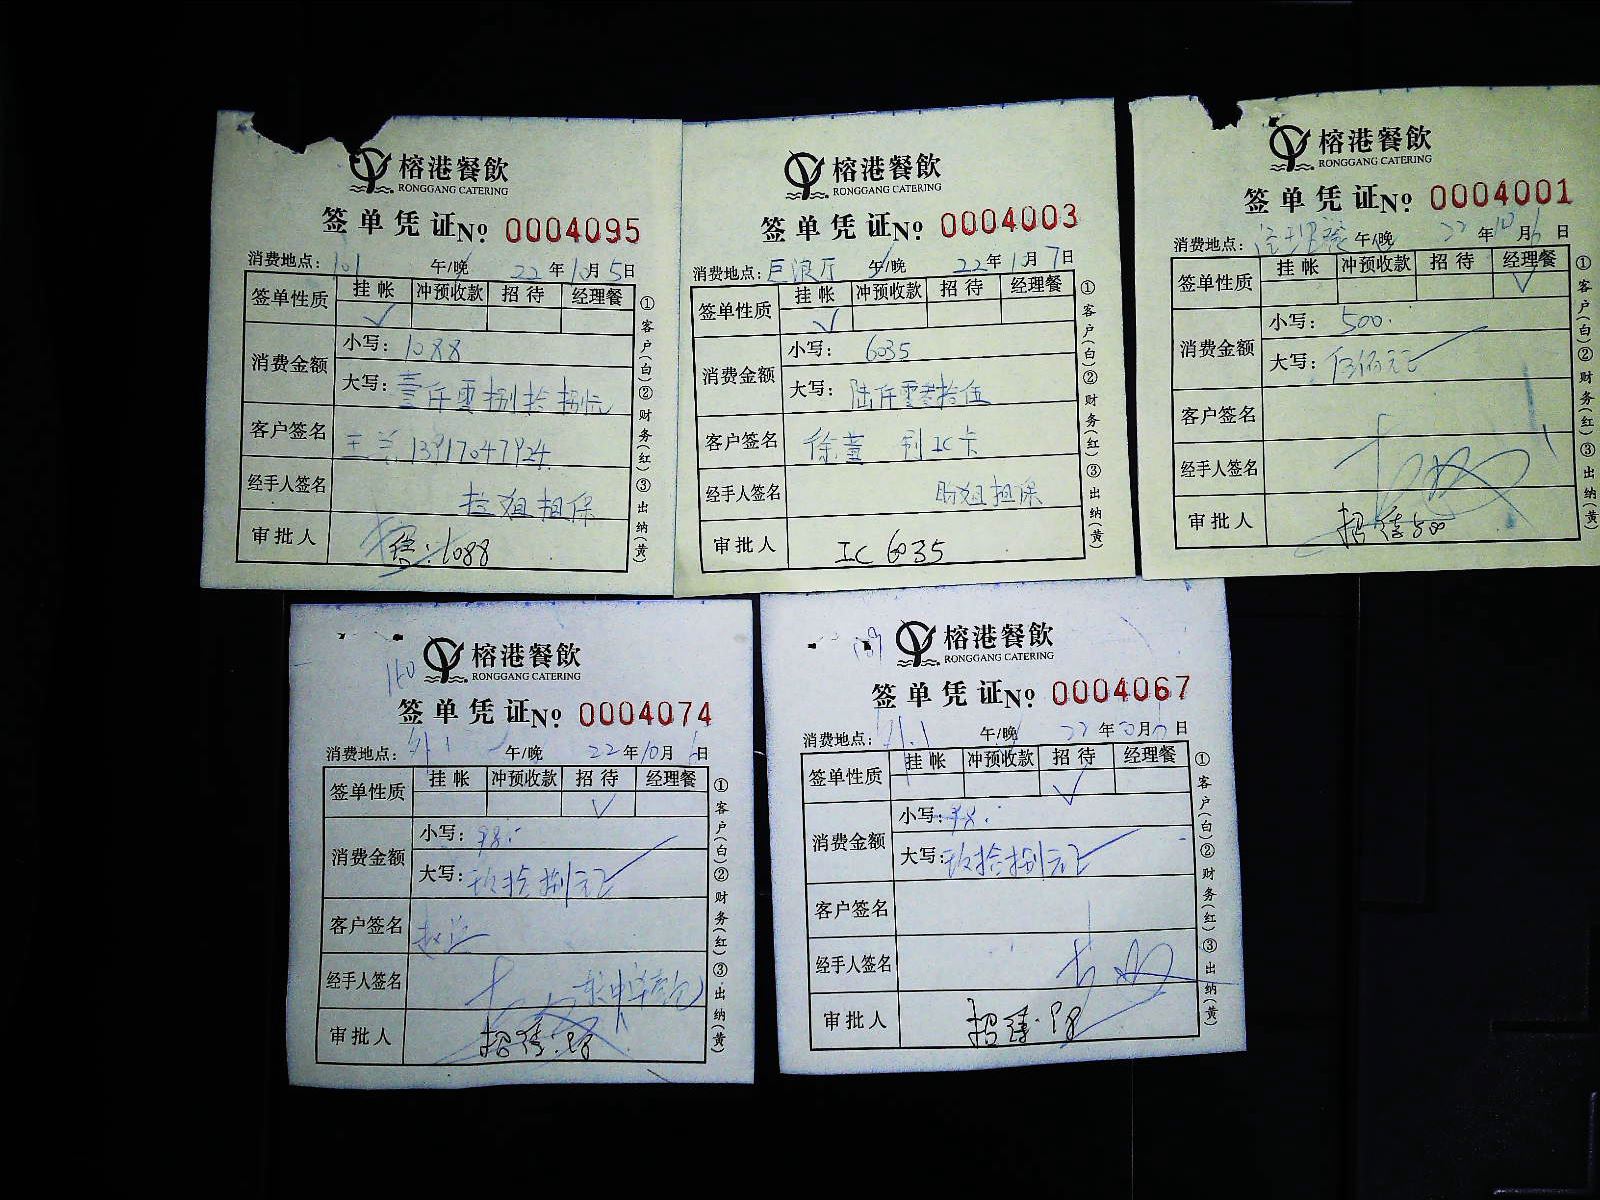 榕港餐飲
RONGGANG CATERING
签单凭证No 0004095
消费地点: 101 午/晚 22年10月5日
签单性质 挂帐 冲预收款 招待 经理餐
消费金额 小写: 1088
大写: 壹仟零捌拾捌元
客户签名 王兰 13917047924
经手人签名 担保
审批人 1088
①客户(白)②财务(红)③出纳(黄)
榕港餐飲
RONGGANG CATERING
签单凭证No 0004003
消费地点: 巨浪厅 午/晚 22年1月7日
签单性质 挂帐 冲预收款 招待 经理餐
消费金额 小写: 6035
大写: 陆仟零叁拾伍
客户签名 徐董 IC卡
经手人签名 担保
审批人 IC 6035
①客户(白)②财务(红)③出纳(黄)
榕港餐飲
RONGGANG CATERING
签单凭证No 0004001
消费地点: 午/晚 22年10月6日
签单性质 挂帐 冲预收款 招待 经理餐
消费金额 小写: 500.
大写: 伍佰元正
客户签名
经手人签名
审批人 招待500
①客户(白)②财务(红)③出纳(黄)
榕港餐飲
RONGGANG CATERING
签单凭证No 0004074
消费地点: 外1 午/晚 22年10月6日
签单性质 挂帐 冲预收款 招待 经理餐
消费金额 小写: 98.
大写: 玖拾捌元正
客户签名
经手人签名
审批人 招待.98
①客户(白)②财务(红)③出纳(黄)
榕港餐飲
RONGGANG CATERING
签单凭证No 0004067
消费地点: 午/晚 22年 月 日
签单性质 挂帐 冲预收款 招待 经理餐
消费金额 小写: 98.
大写: 玖拾捌元正
客户签名
经手人签名
审批人 招待.98
①客户(白)②财务(红)③出纳(黄)